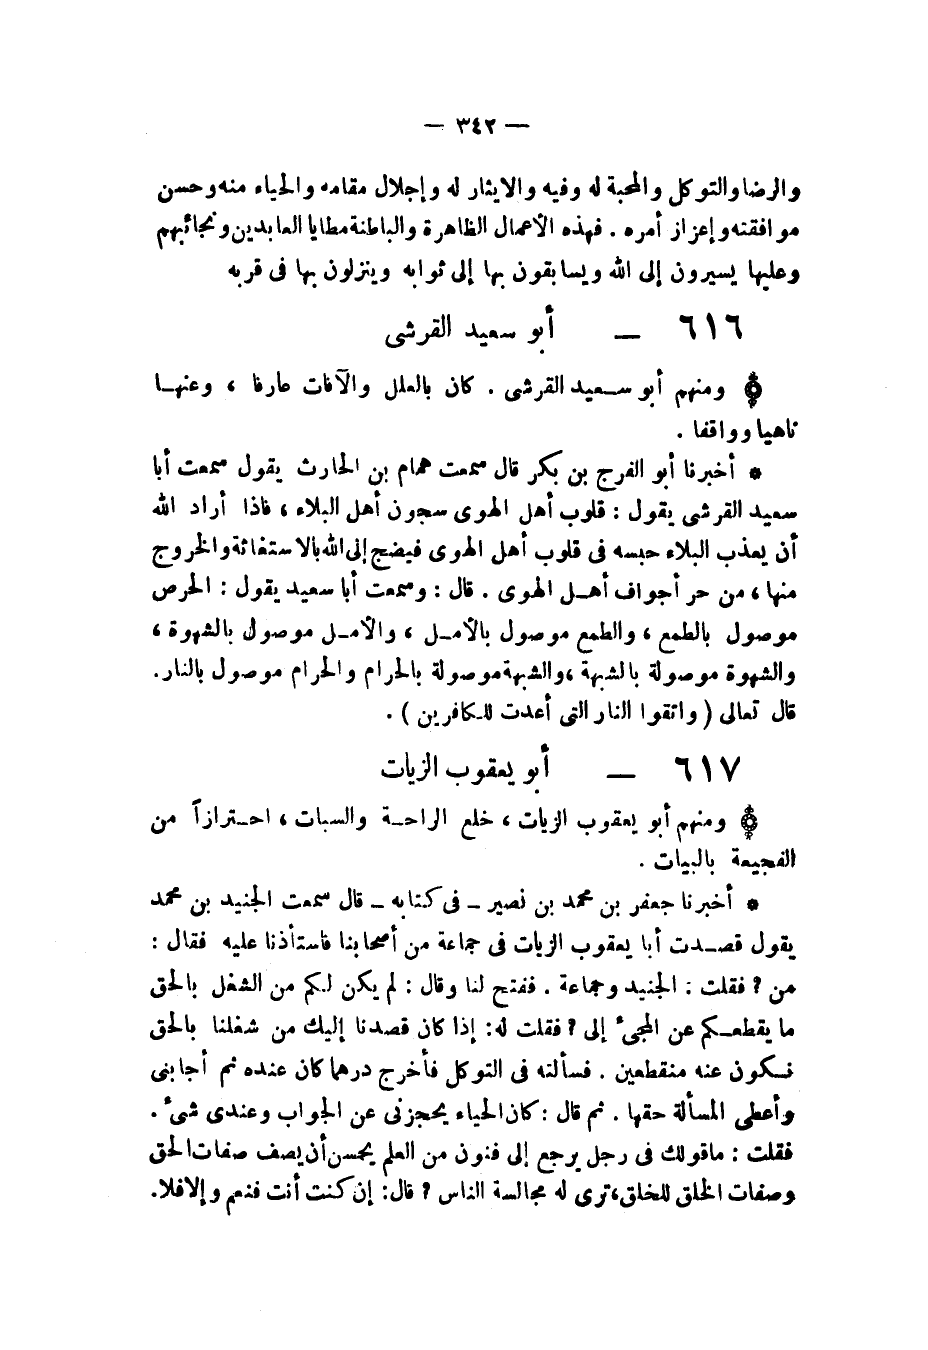 — ٣٤٢ —
والرضا والتوكل والمحبة له وفيه والايثار له وإجلال مقامه والحياء منه وحسن
موافقته وإعزاز أمره . فهذه الأعمال الظاهرة والباطنة مطايا العابدين ونجائبهم
وعليها يسيرون إلى الله ويسابقون بها إلى ثوابه وينزلون بها فى قربه
٦١٦ — أبو سعيد القرشى
۞ ومنهم أبو سعيد القرشى . كان بالعلل والآفات عارفا ، وعنها
ناهيا وواقفا .
* أخبرنا أبو الفرج بن بكر قال سمعت همام بن الحارث يقول سمعت أبا
سعيد القرشى يقول : قلوب أهل الهوى سجون أهل البلاء ، فاذا أراد الله
أن يعذب البلاء حبسه فى قلوب أهل الهوى فيضج إلى الله بالاستغاثة والخروج
منها ، من حر أجواف أهل الهوى . قال : وسمعت أبا سعيد يقول : الحرص
موصول بالطمع ، والطمع موصول بالأمل ، والأمل موصول بالشهوة ،
والشهوة موصولة بالشبهة ، والشبهة موصولة بالحرام والحرام موصول بالنار.
قال تعالى ( واتقوا النار التى أعدت للكافرين ) .
٦١٧ — أبو يعقوب الزيات
۞ ومنهم أبو يعقوب الزيات ، خلع الراحة والسبات ، احترازاً من
الفجيعة بالبيات .
* أخبرنا جعفر بن محمد بن نصير - فى كتابه - قال سمعت الجنيد بن محمد
يقول قصدت أبا يعقوب الزيات فى جماعة من أصحابنا فاستأذنا عليه فقال :
من ؟ فقلت : الجنيد وجماعة . ففتح لنا وقال : لم يكن لكم من الشغل بالحق
ما يقطعكم عن المجىء إلى ؟ فقلت له : إذا كان قصدنا إليك من شغلنا بالحق
نكون عنه منقطعين . فسألته فى التوكل فأخرج درهما كان عنده ثم أجابنى
وأعطى المسألة حقها . ثم قال : كان الحياء يحجزنى عن الجواب وعندى شىء .
فقلت : ماقولك فى رجل يرجع إلى فنون من العلم يحسن أن يصف صفات الحق
وصفات الخلق للخلق، ترى له مجالسة الناس ؟ قال: إن كنت أنت فنعم وإلا فلا.